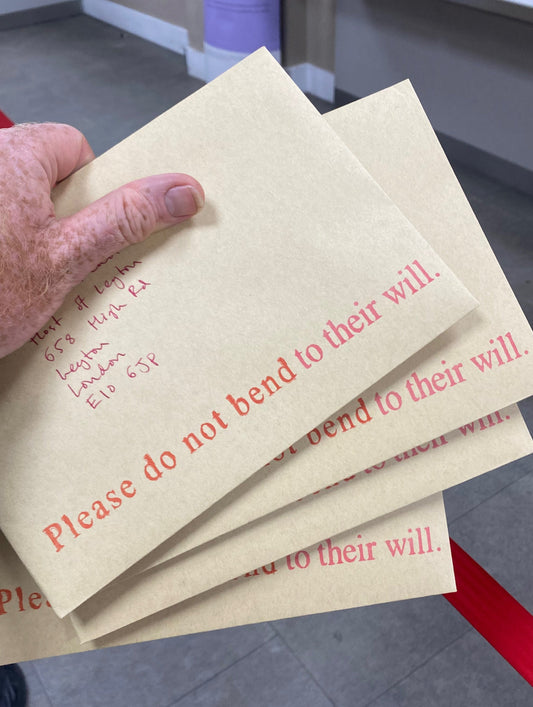 Host of Leyton
658 High Rd
Leyton
London
E10 6JP
Please do not bend to their will.
not bend to their will.
bend to their will.
end to their will.
Plea